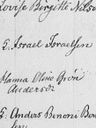 Lovise Birgitte Nils
T. Israel Israelsen
Hanna Oline
Anderson
T. Anders Benoni